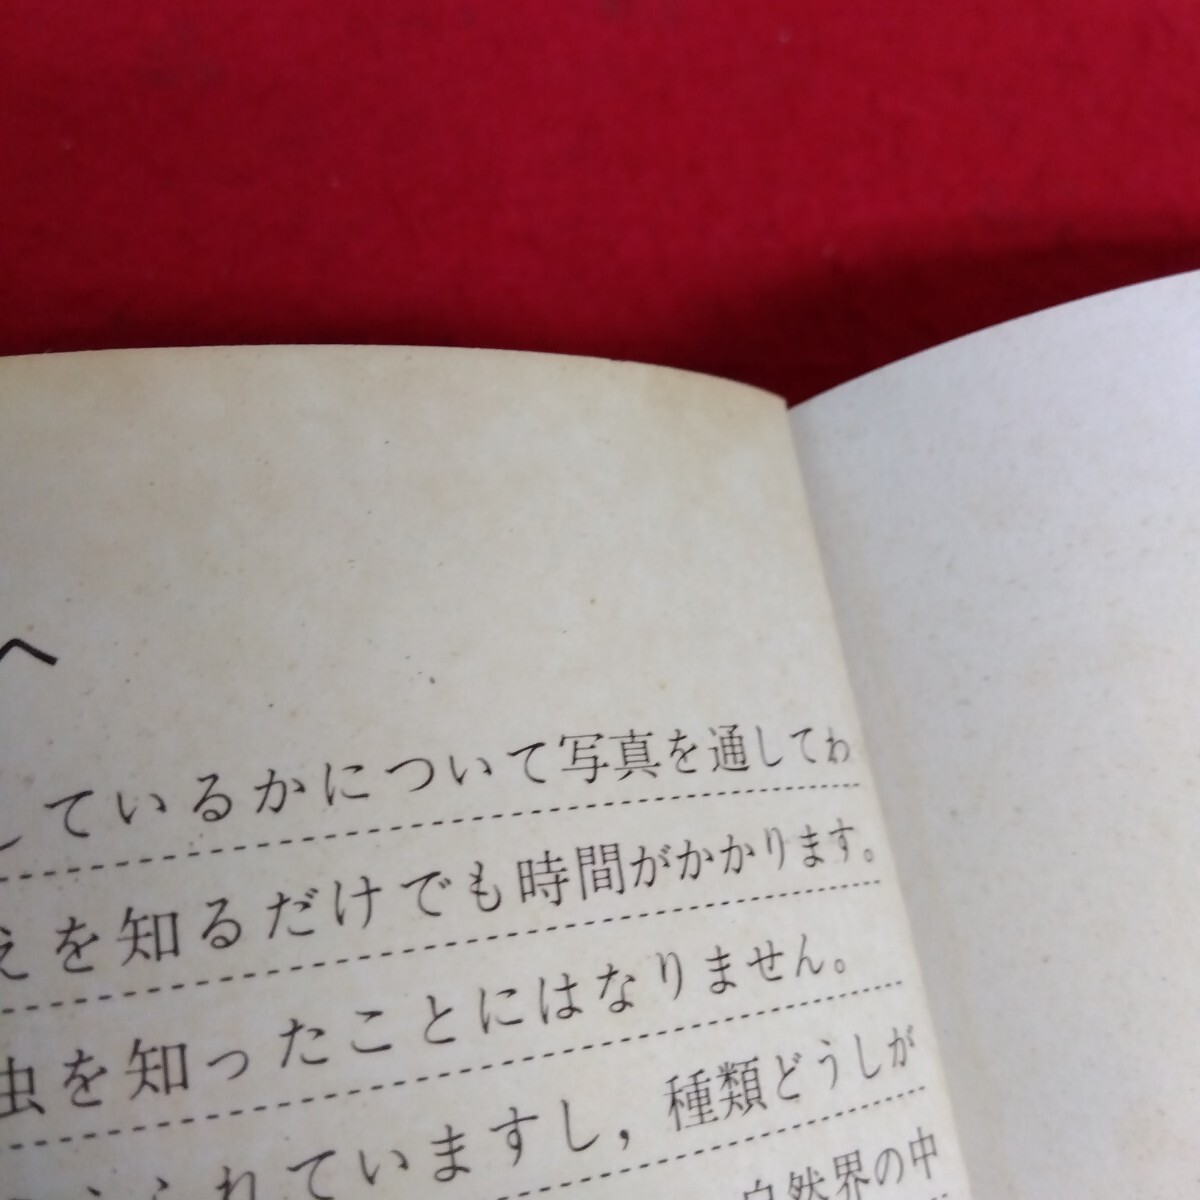 へ
しているかについて写真を通してわ
えを知るだけでも時間がかかります。
虫を知ったことにはなりません。
れていますし，種類どうしが
自然界の中